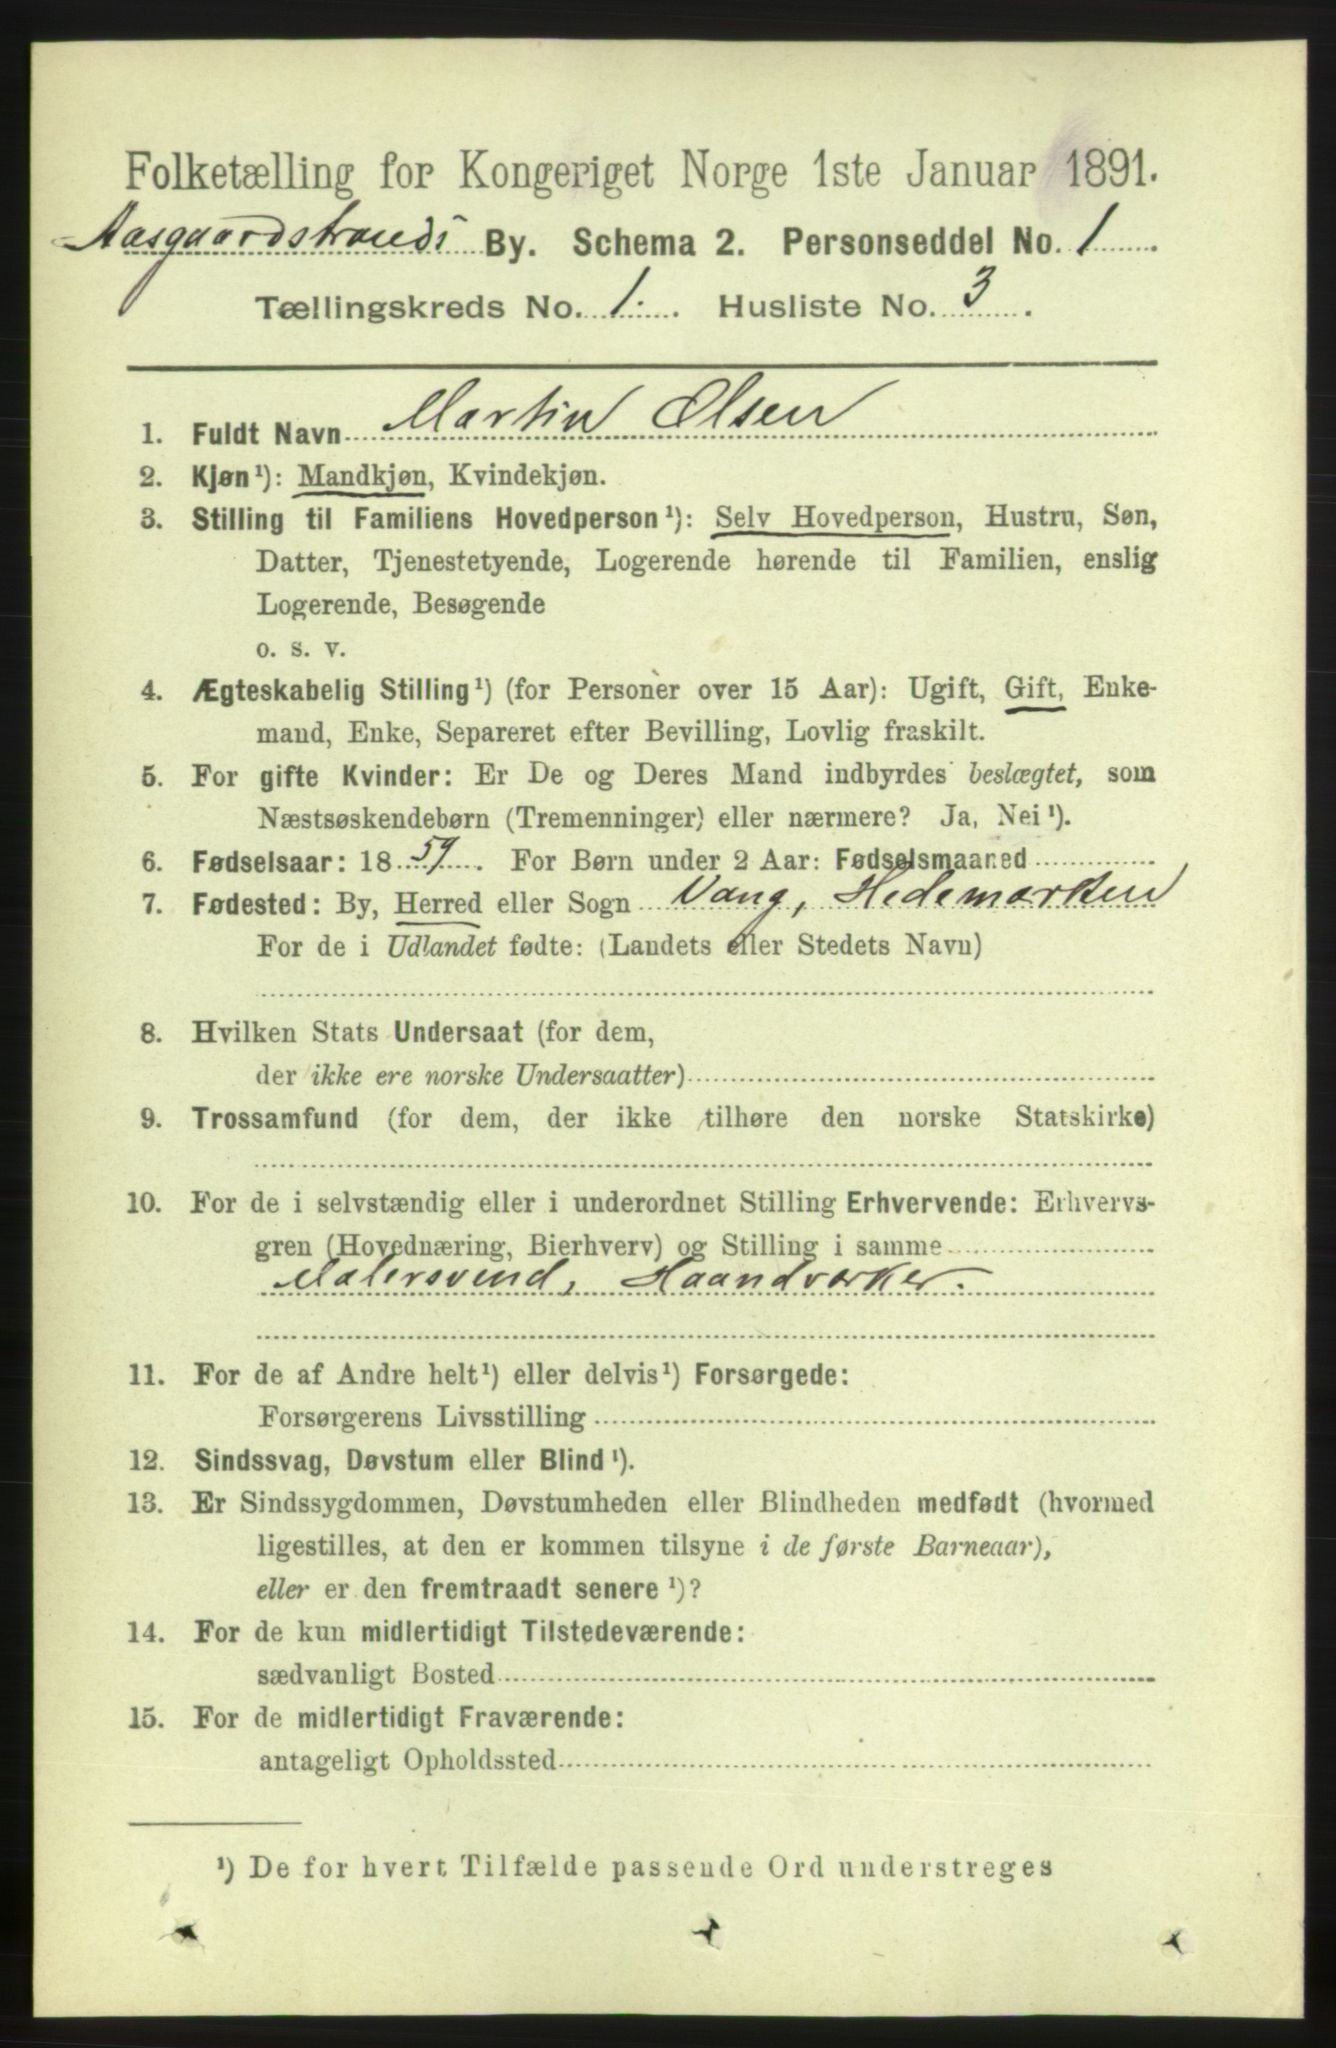 Folketælling for Kongeriget Norge 1ste Januar 1891.
Aasgaardstrands By. Schema 2. Personseddel No. 1
Tællingskreds No. 1. Husliste No. 3.
1. Fuldt Navn Martin Olsen
2. Kjøn¹): Mandkjøn, Kvindekjøn.
3. Stilling til Familiens Hovedperson¹): Selv Hovedperson, Hustru, Søn,
Datter, Tjenestetyende, Logerende hørende til Familien, enslig
Logerende, Besøgende
o. s. v.
4. Ægteskabelig Stilling¹) (for Personer over 15 Aar): Ugift, Gift, Enke-
mand, Enke, Separeret efter Bevilling, Lovlig fraskilt.
5. For gifte Kvinder: Er De og Deres Mand indbyrdes beslægtet, som
Næstsøskendebørn (Tremenninger) eller nærmere? Ja, Nei¹).
6. Fødselsaar: 1859. For Børn under 2 Aar: Fødselsmaaned
7. Fødested: By, Herred eller Sogn Vang, Hedemarken
For de i Udlandet fødte: (Landets eller Stedets Navn)
8. Hvilken Stats Undersaat (for dem,
der ikke ere norske Undersaatter)
9. Trossamfund (for dem, der ikke tilhøre den norske Statskirke)
10. For de i selvstændig eller i underordnet Stilling Erhvervende: Erhvervs-
gren (Hovednæring, Bierhverv) og Stilling i samme
Malersvend, Haandværker.
11. For de af Andre helt¹) eller delvis¹) Forsørgede:
Forsørgerens Livsstilling
12. Sindssvag, Døvstum eller Blind¹).
13. Er Sindssygdommen, Døvstumheden eller Blindheden medfødt (hvormed
ligestilles, at den er kommen tilsyne i de første Barneaar),
eller er den fremtraadt senere¹)?
14. For de kun midlertidigt Tilstedeværende:
sædvanligt Bosted
15. For de midlertidigt Fraværende:
antageligt Opholdssted
¹) De for hvert Tilfælde passende Ord understreges